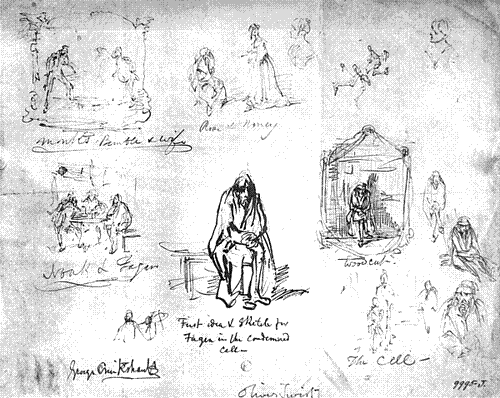 Monks Bumble & wife
Rose & Nancy
Noah & Fagin
Woodcut—
First idea & Sketch for
Fagin in the Condemned
Cell—
The Cell—
George Cruikshank
Oliver Twist
9995.J.